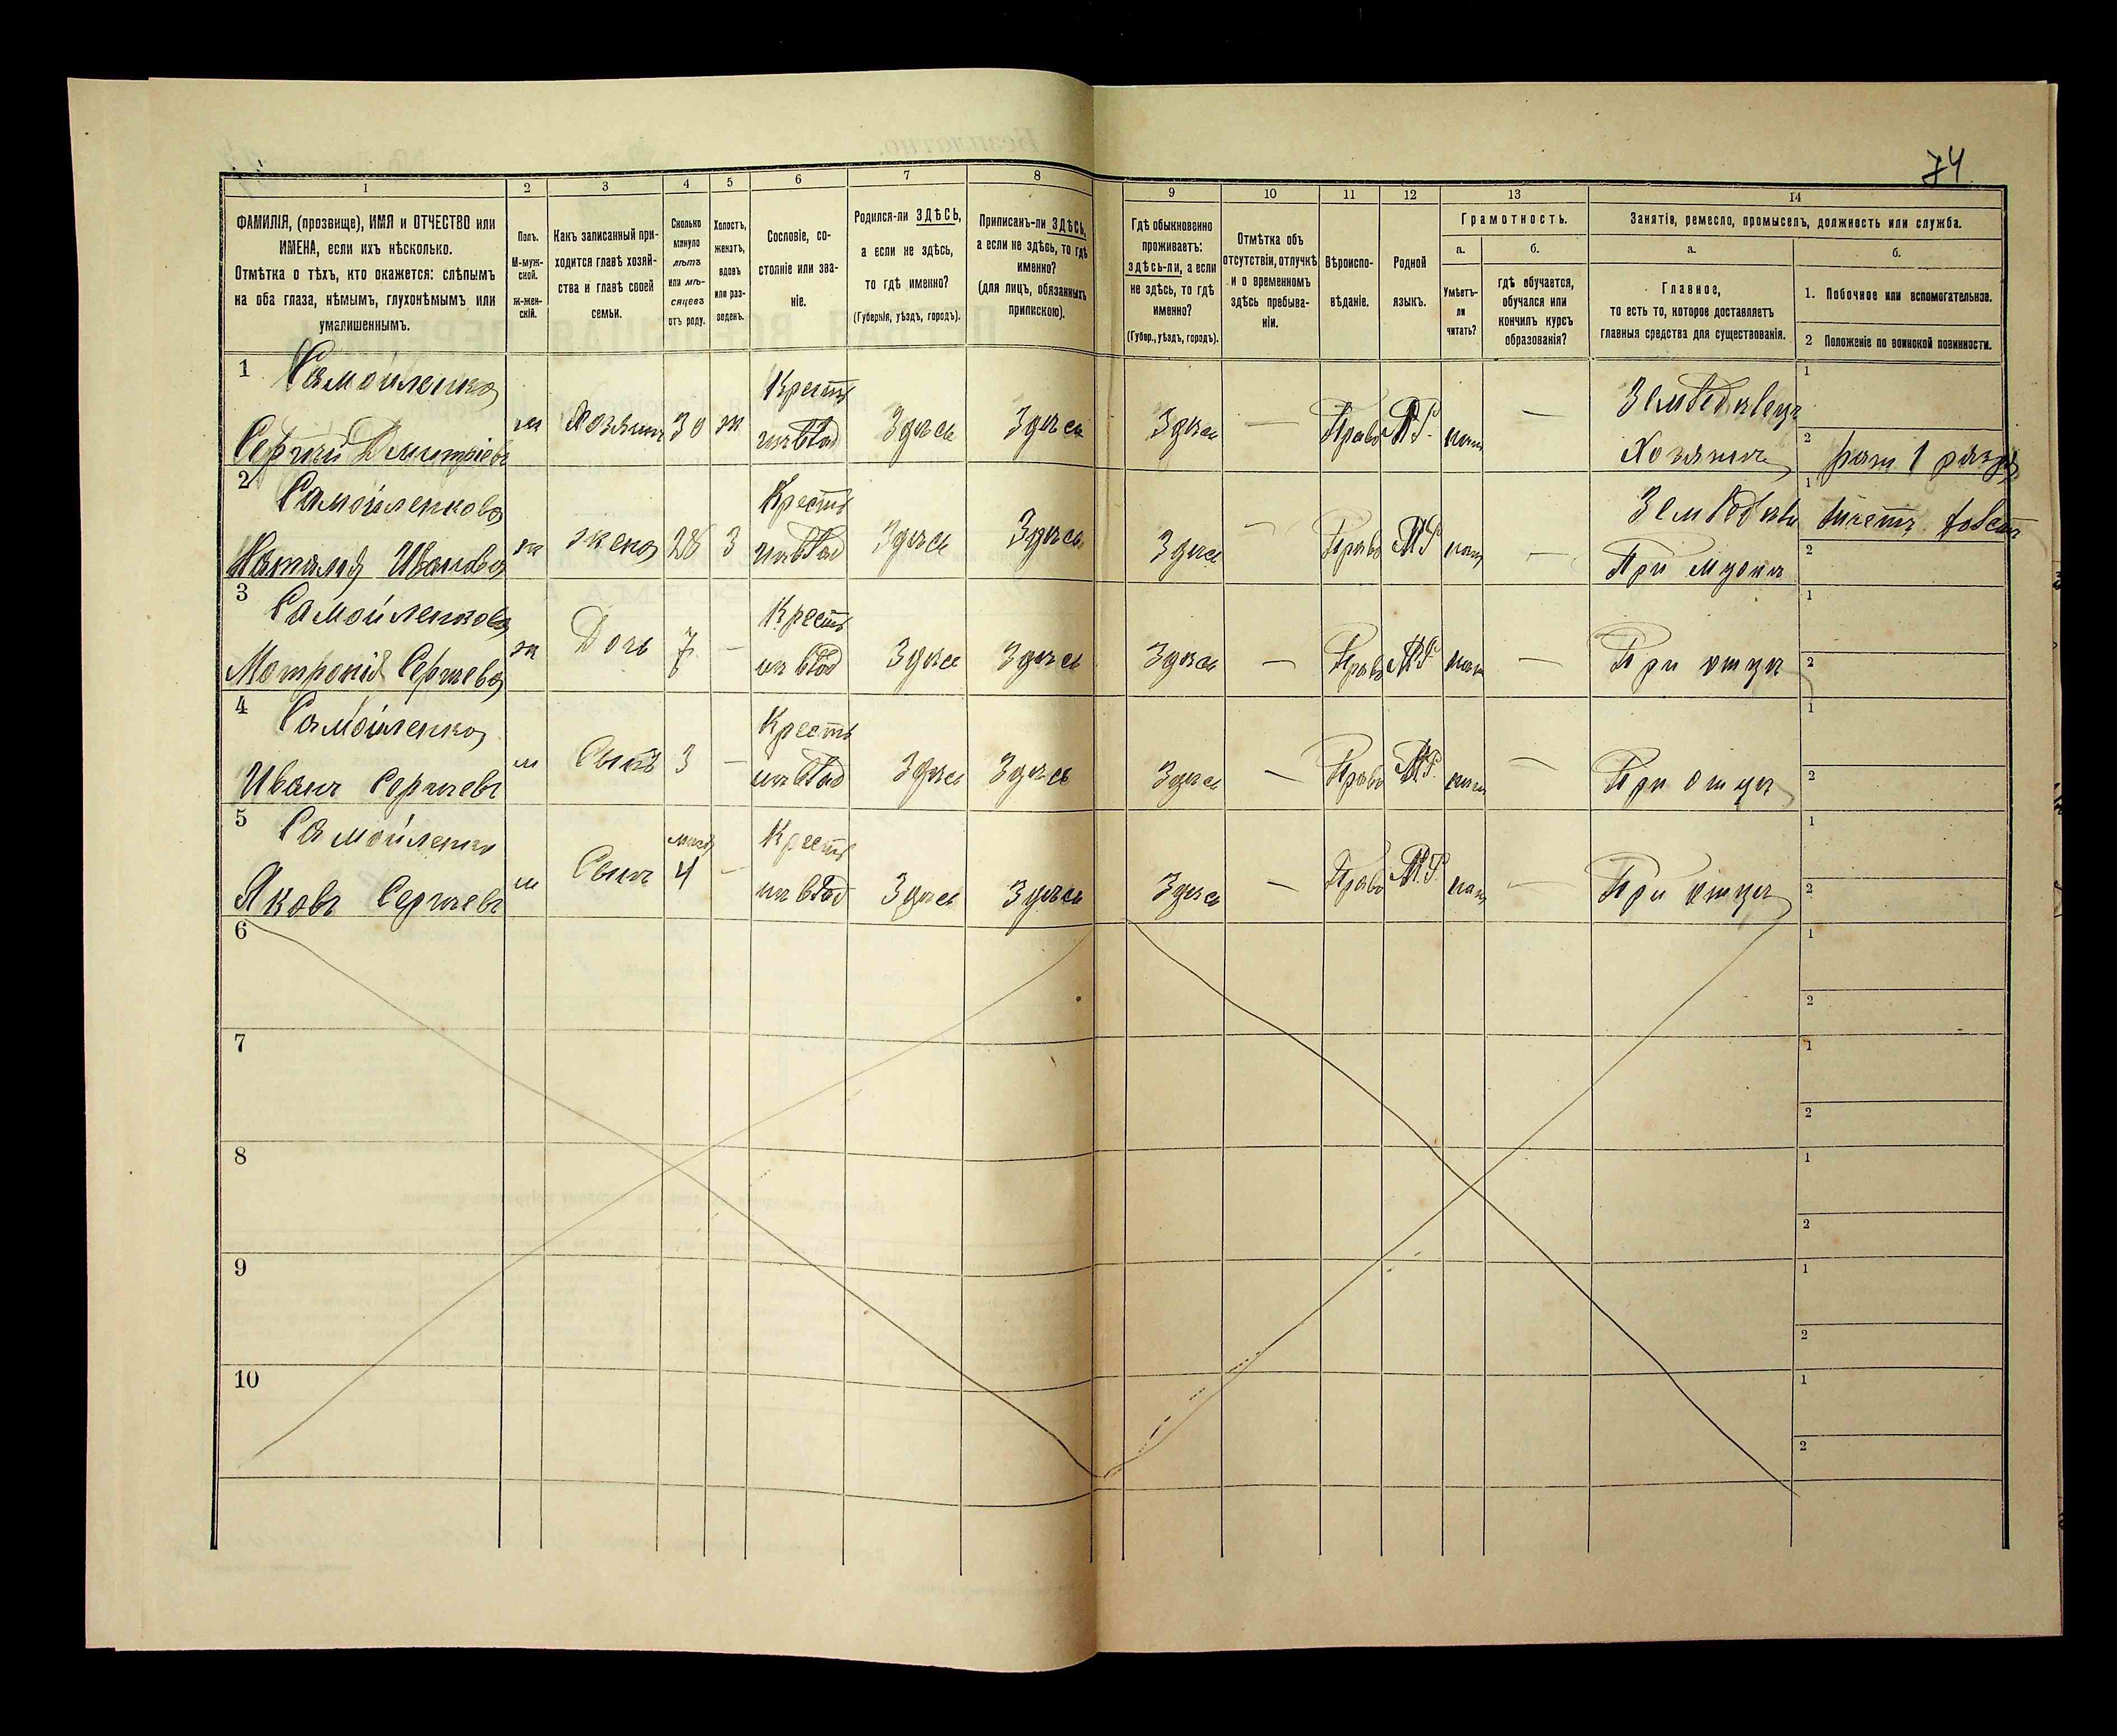 74
1 2 3 4 5 6 7 8 9 10 11 12 13 14
ФАМИЛІЯ, (прозвище), ИМЯ и ОТЧЕСТВО или
ИМЕНА, если ихъ нѣсколько.
Отмѣтка о тѣхъ, кто окажется: слѣпымъ
на оба глаза, нѣмымъ, глухонѣмымъ или
умалишеннымъ.
Полъ.
М-муж-
ской.
Ж-жен-
скій.
Какъ записанный при-
ходится главѣ хозяй-
ства и главѣ своей
семьи.
Сколько
минуло
лѣтъ
или мѣ-
сяцевъ
отъ роду.
Холостъ,
женатъ,
вдовъ
или раз-
веденъ.
Сословіе, со-
стояніе или зва-
ніе.
Родился-ли ЗДѢСЬ,
а если не здѣсь,
то гдѣ именно?
(Губернія, уѣздъ, городъ).
Приписанъ-ли ЗДѢСЬ,
а если не здѣсь, то гдѣ
именно?
(для лицъ, обязанныхъ
припискою).
Гдѣ обыкновенно
проживаетъ:
здѣсь-ли, а если
не здѣсь, то гдѣ
именно?
(Губер., уѣздъ, городъ).
Отмѣтка объ
отсутствіи, отлучкѣ
и о временномъ
здѣсь пребыва-
ніи.
Вѣроиспо-
вѣданіе.
Родной
языкъ.
Грамотность.
а.
Умѣетъ-
ли
читать?
б.
гдѣ обучается,
обучался или
кончилъ курсъ
образованія?
Занятіе, ремесло, промыселъ, должность или служба.
а.
Главное,
то есть то, которое доставляетъ
главныя средства для существованія.
б.
1. Побочное или вспомогательное.
2 Положеніе по воинской повинности.
1 Самойленко Крестъ Земледѣлецъ 1
Сергѣй Дмитріевъ м Хозяинъ 30 ж Здѣсь Здѣсь Здѣсь — Право М.Р. — Хозяинъ 2 1
2 Самойленкова Крестъ 1
Наталія Иванова ж жена 28 З Здѣсь Здѣсь Здѣсь — Право М.Р. — При мужѣ 2
3 Самойленкова Крестъ 1
Мотронія Сергѣева ж Дочь 7 — Здѣсь Здѣсь Здѣсь — Право М.Р. — При отцѣ 2
4 Самойленко Крестъ 1
Иванъ Сергѣевъ м Сынъ 3 — Здѣсь Здѣсь Здѣсь — Право М.Р. — При отцѣ 2
5 Самойленко Крестъ 1
Яковъ Сергѣевъ м Сынъ 4 — Здѣсь Здѣсь Здѣсь — Право М.Р. — При отцѣ 2
6 1
2
7 1
2
8 1
2
9 1
2
10 1
2